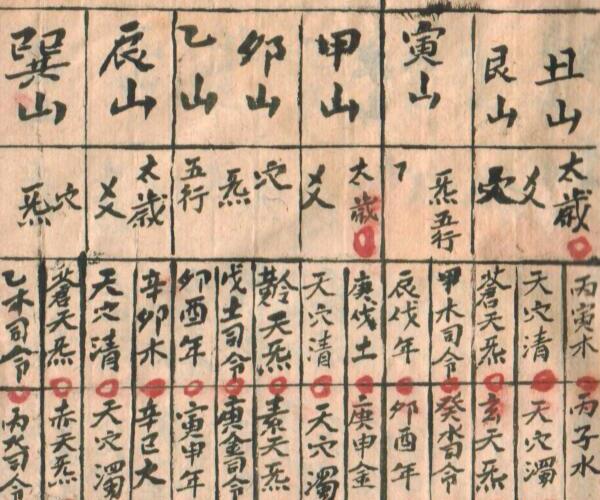 丑山
艮山
寅山
甲山
卯山
乙山
辰山
巽山
太歲
爻
穴
炁五行
太歲
爻
穴
炁
五行
太歲
爻
穴
炁
丙寅木
天穴清
蒼天炁
甲木司令
辰戌年
庚戌土
天穴清
黅天炁
戊土司令
卯酉年
辛卯木
天穴清
蒼天炁
乙木司令
丙子水
天穴濁
玄天炁
癸水司令
卯酉年
庚申金
天穴濁
素天炁
庚金司令
寅申年
辛巳火
天穴濁
赤天炁
丙火司令